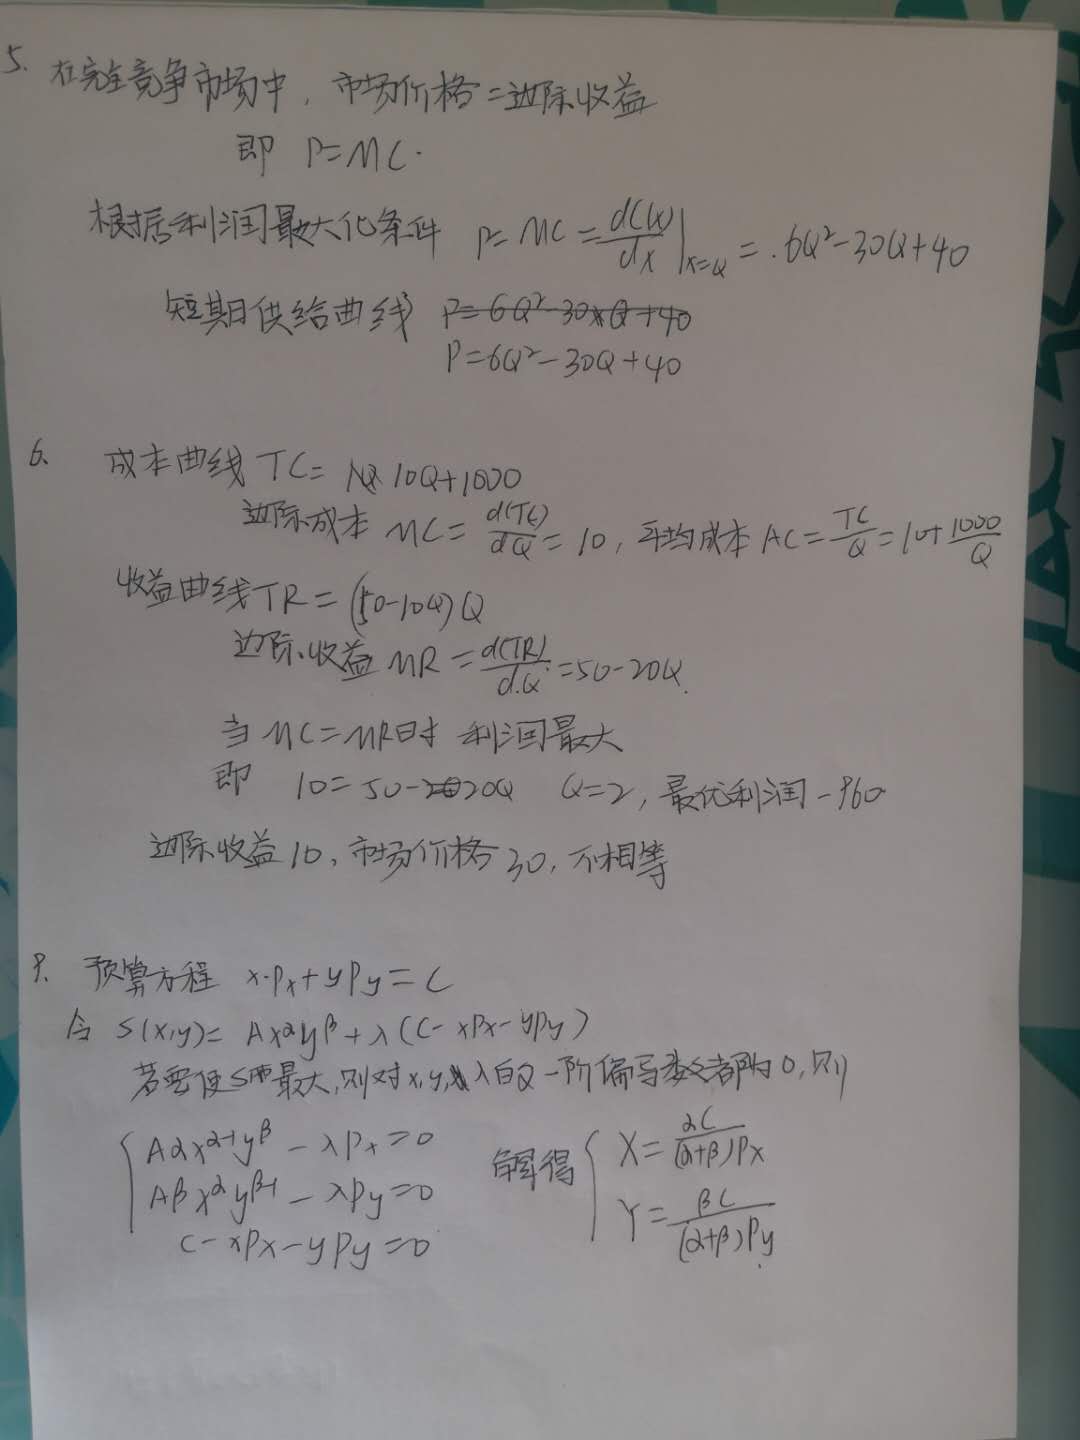 5. 在完全竞争市场中，市场价格=边际收益
即 P=MC.
根据利润最大化条件 P=MC=dC(x)/dx|x=Q =.6Q²-30Q+40
短期供给曲线 P=6Q²-30xQ+40
P=6Q²-30Q+40
6. 成本曲线 TC= 10Q+1000
边际成本 MC=d(TC)/dQ=10, 平均成本 AC=TC/Q=10+1000/Q
收益曲线 TR=(50-10Q)Q
边际收益 MR=d(TR)/dQ=50-20Q.
当 MC=MR时 利润最大
即 10=50-20Q Q=2, 最优利润-960
边际收益10, 市场价格30, 不相等
预算方程 x·Px+yPy=C
令 S(x,y)= Ax^αy^β+λ(C-xPx-yPy)
若要使S最大,则对x,y,λ的一阶偏导数都为0,则
{ Aαx^(α-1)y^β-λPx=0
Aβx^αy^(β-1)-λPy=0
C-xPx-yPy=0
解得 { X=αC/(α+β)Px
Y=βC/(α+β)Py